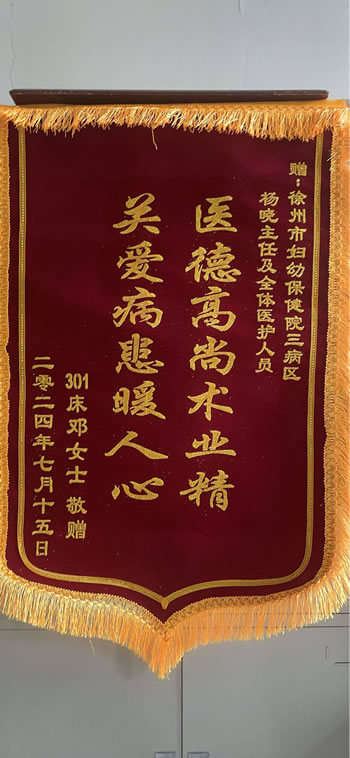 赠：徐州市妇幼保健院三病区
杨晓主任及全体医护人员
医德高尚术业精
关爱病患暖人心
301床邓女士 敬赠
二零二四年七月十五日